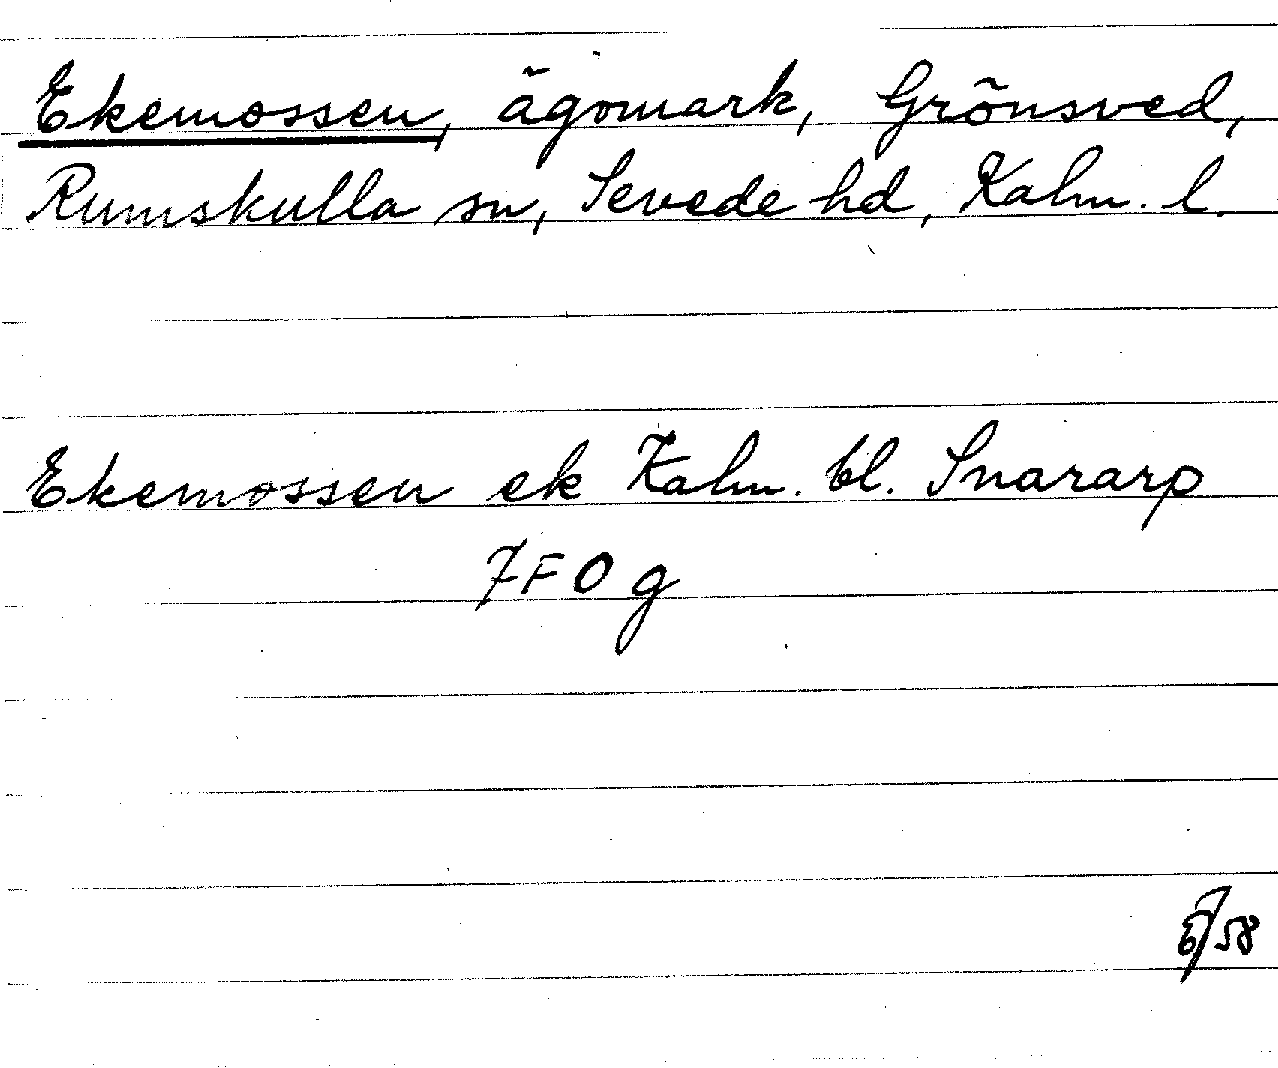 Ekemossen, ägomark, Grönsved,
Rumskulla sn, Sevede hd, Kalm. l.
Ekemossen ek Kalm. bl. Snararp
7F0g